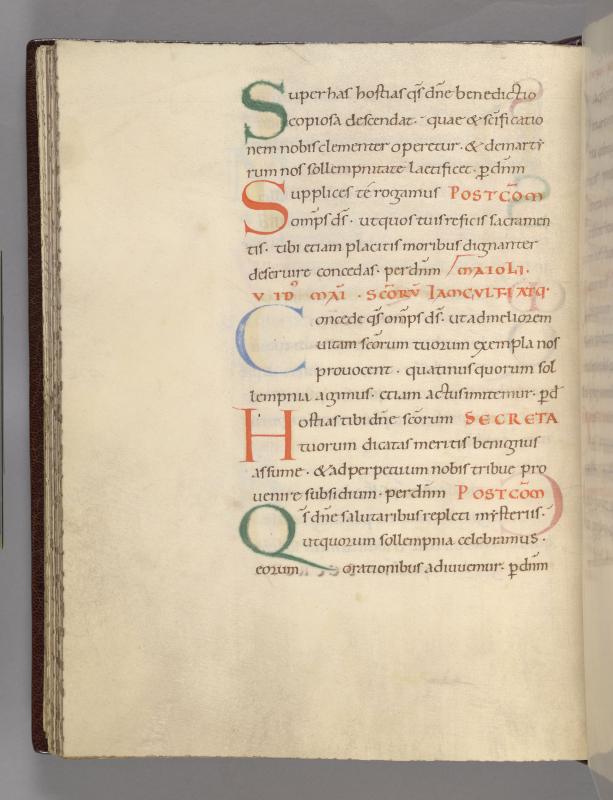 Super has hostias qs dñe benedictio
copiosa descendat. quae & scīficatio
nem nobis clementer operetur. & de martẏ
rum nos sollempnitate laetificet. p̄ dñm
Supplices te rogamus POSTCŌM
omps ds. ut quos tuis reficis sacramen
tis. tibi etiam placitis moribus dignanter
deseruire concedas. per dnm MAIOLI.
VID MAI . SCORŪ IACVLFI ATQ.
Concede qs omps ds. ut ad meliorem
uitam scōrum tuorum exempla nos
prouocent. quatinus quorum sol
lempnia agimus. etiam actus imitemur. p̄ d
Hostias tibi dñe scōrum SECRETA
tuorum dicatas meritis benignus
assume. & ad perpetuum nobis tribue pro
uenire subsidium. per dnm POSTCŌM
Qs dñe salutaribus repleti mẏsteriis.
ut quorum sollempnia celebramus.
eorum orationibus adiuuemur. p̄ dñm